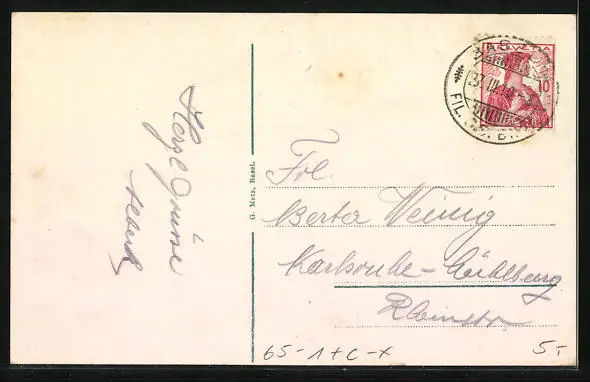 Herzl. Grüsse
Albert
G. Metz, Basel.
HELVETIA
10
BAS
27.III.10
FIL. B.
Frl.
Berta Weinig
Karlsruhe-Mühlburg
Rheinstr.
65-1+C-X
5.-